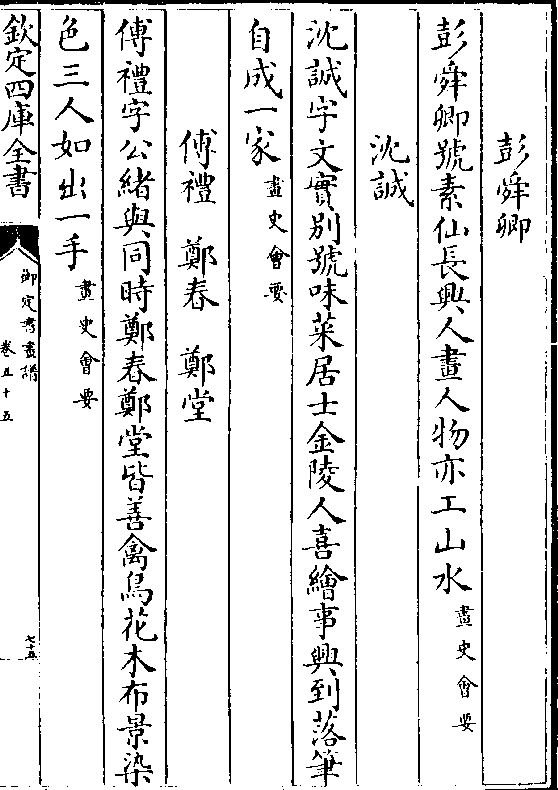 彭舜卿
彭舜卿號素仙長興人畫人物亦工山水畫史會要
沈誠
沈誠字文實别號味菜居士金陵人喜繪事興到落筆
自成一家畫史會要
傅禮　鄭春　鄭堂
傅禮字公緒與同時鄭春鄭堂皆善禽鳥花木布景染
色三人如出一手畫史會要
欽定四庫全書
御定書畫譜
卷五十五
七十五